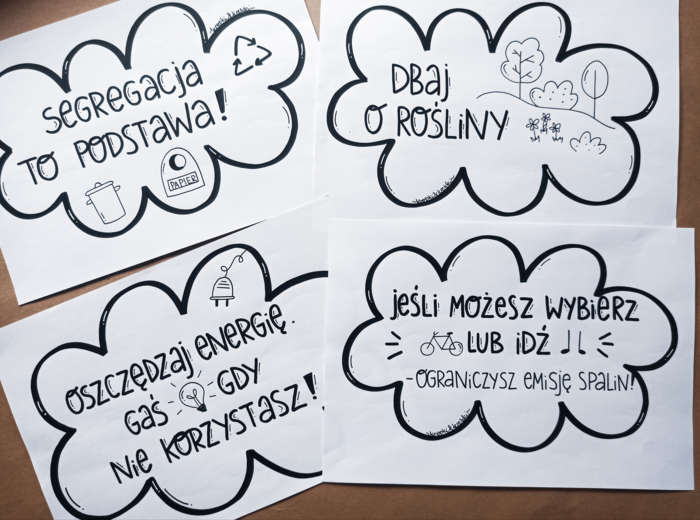 SEGREGACJA
TO PODSTAWA!
PAPIER
DBAJ
O ROŚLINY
OSZCZĘDZAJ ENERGIĘ.
GAŚ GDY
NIE KORZYSTASZ!
JEŚLI MOŻESZ WYBIERZ
LUB IDŹ
-OGRANICZYSZ EMISJĘ SPALIN!